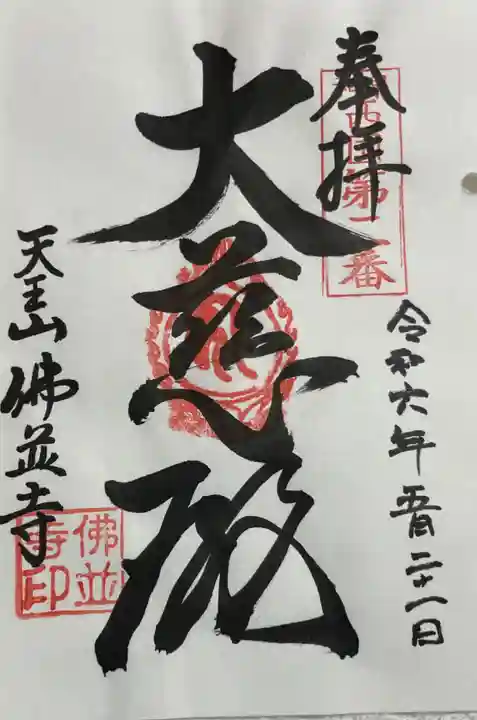 奉拝
西国第二番
令和六年五月二十一日
大慈殿
天王山佛並寺
佛並寺印